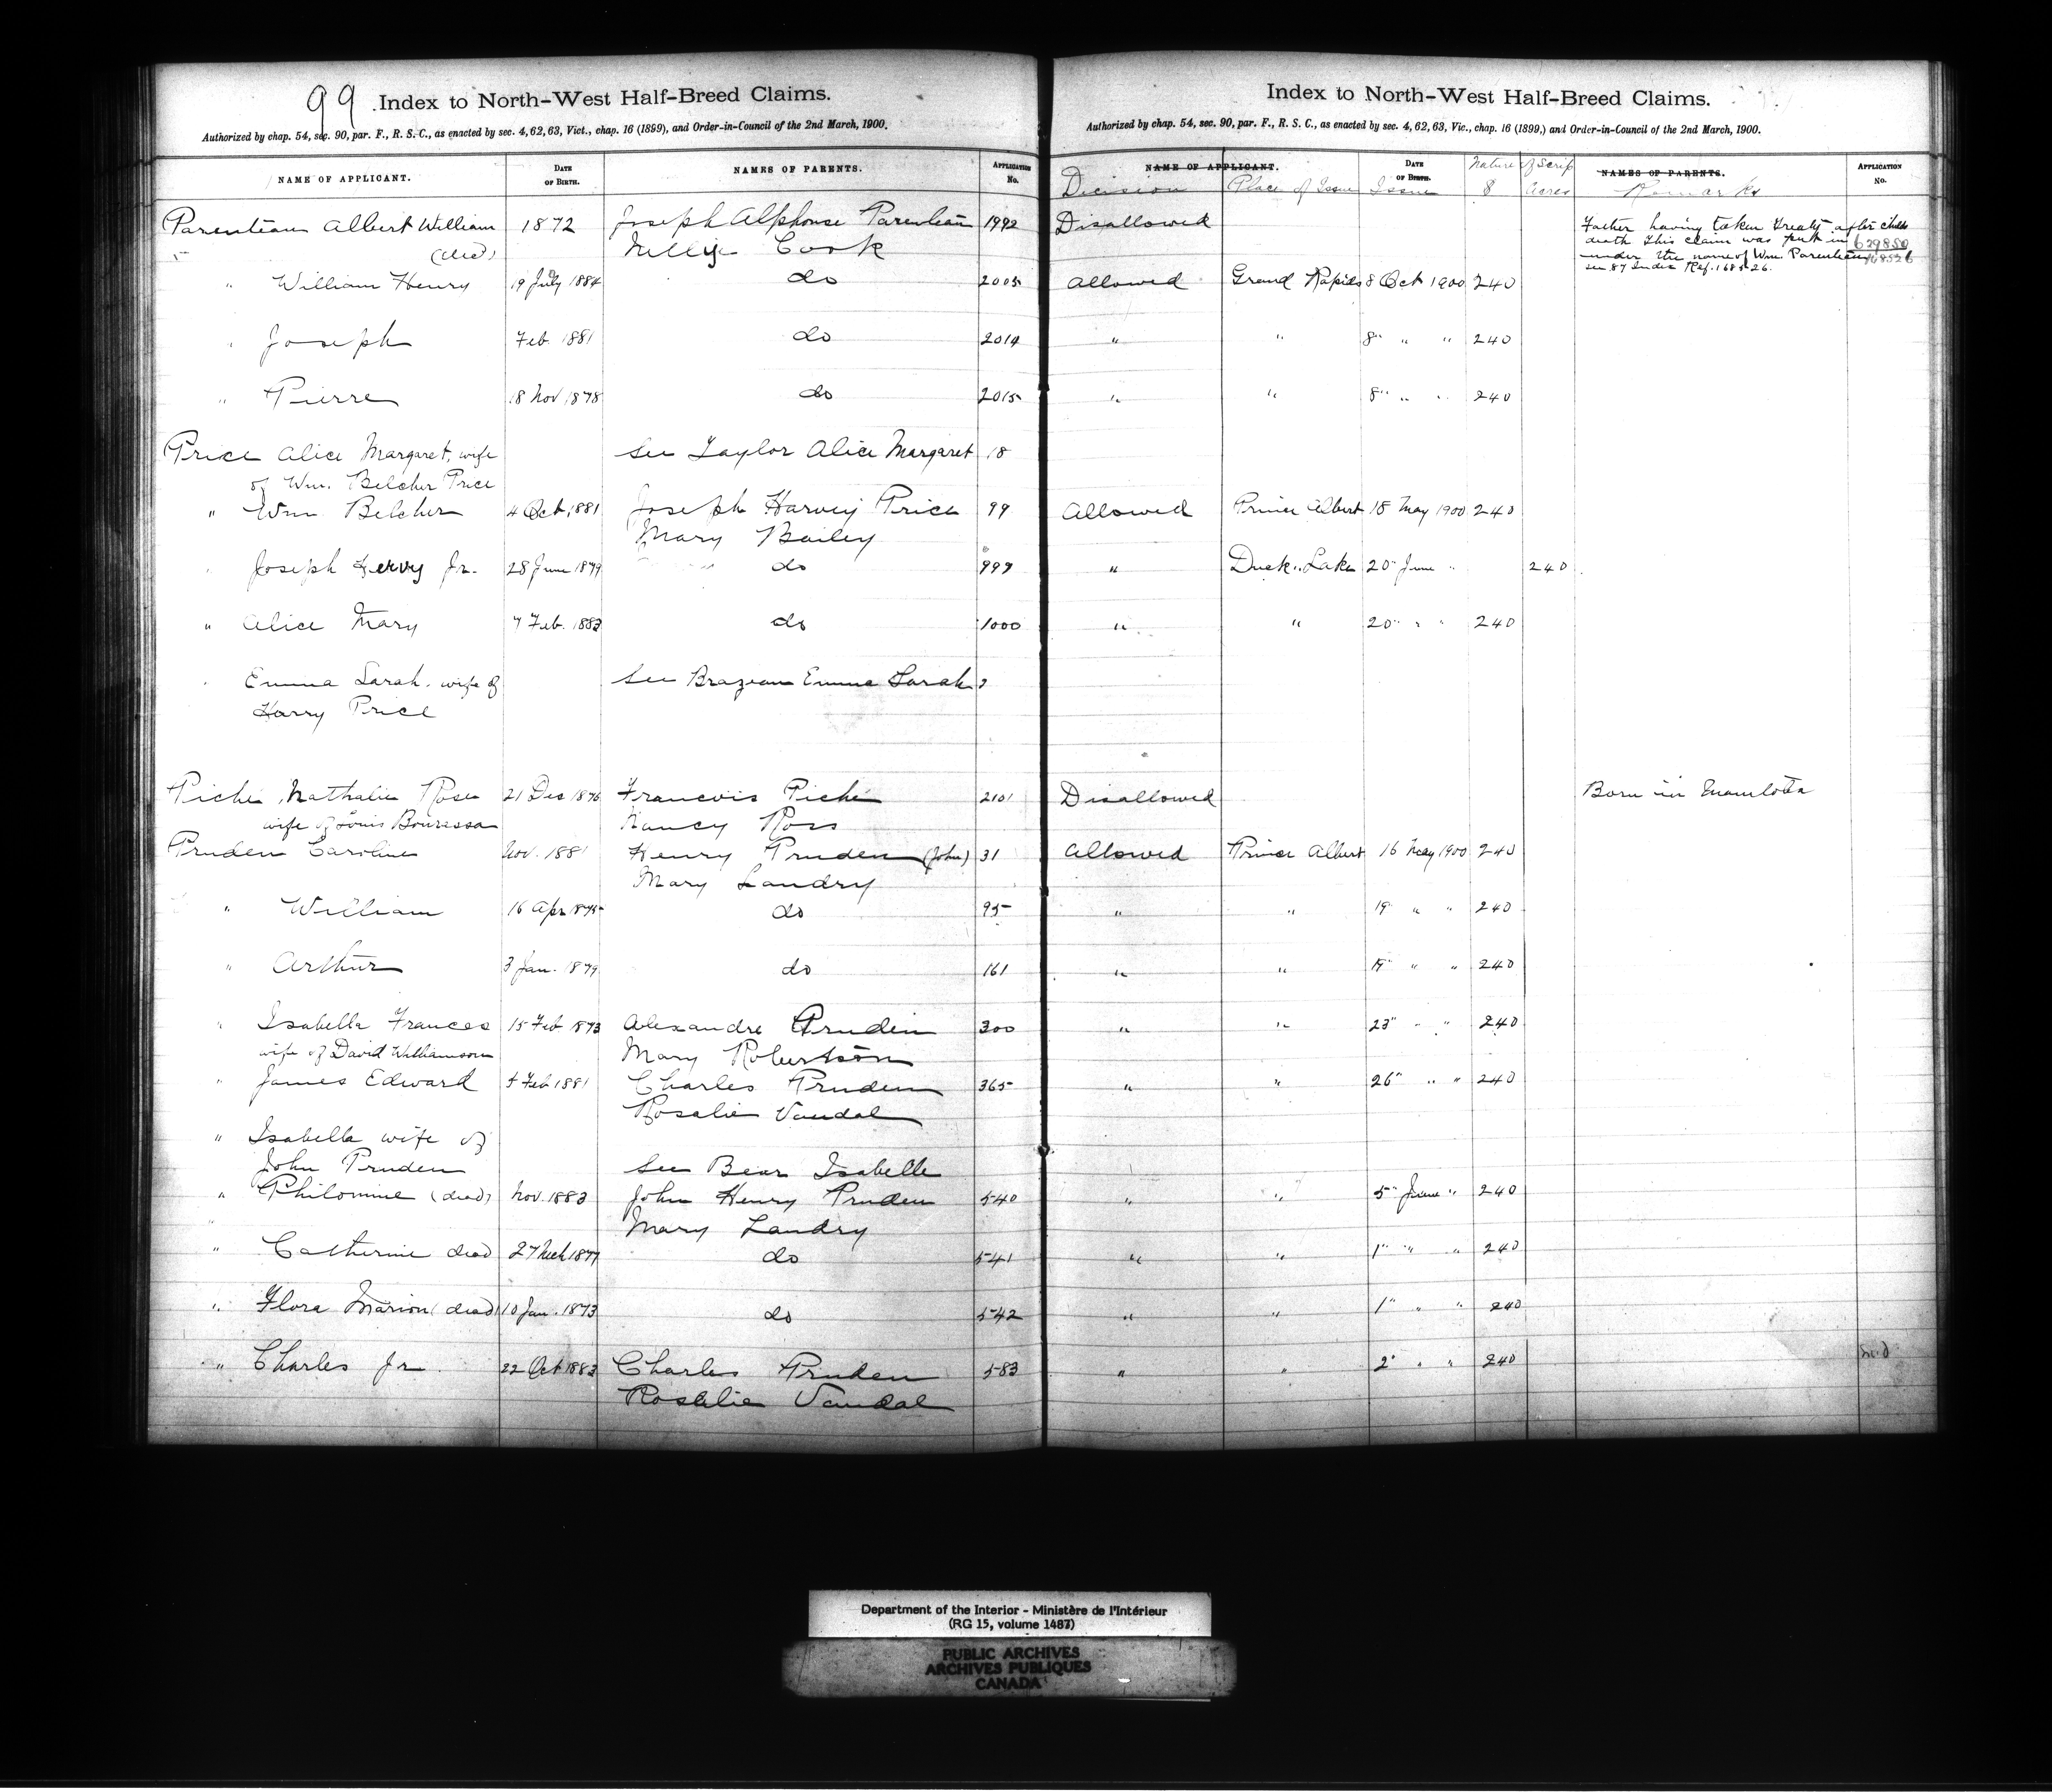 99 Index to North-West Half-Breed Claims.
Authorized by chap. 54, sec. 90, par. F., R. S. C., as enacted by sec. 4, 62, 63, Vict., chap. 16 (1899), and Order-in-Council of the 2nd March, 1900.
NAME OF APPLICANT. DATE OF BIRTH. NAMES OF PARENTS. APPLICATION No.
Index to North-West Half-Breed Claims.
Authorized by chap. 54, sec. 90, par. F., R. S. C., as enacted by sec. 4, 62, 63, Vic., chap. 16 (1899,) and Order-in-Council of the 2nd March, 1900.
NAME OF APPLICANT. DATE OF BIRTH. Nature of Scrip NAMES OF PARENTS. APPLICATION No.
Decision Place of Issue Issue $ Acres Remarks
Parenteau Albert William 1872 Joseph Alphonse Parenteau 1992 Disallowed Father having taken Treaty after childs
(died) Nellye Cook death this claim was put in 629850
under the name of Wm. Parenteau 168526
see 87 Index Ref. 168526.
" William Henry 19 July 1884 do 2005 Allowed Grand Rapids 8 Oct 1900 240
" Joseph Feb. 1881 do 2014 " " 8" " " 240
" Pierre 18 Nov 1878 do 2015 " " 8" " " 240
Price Alice Margaret, wife See Taylor Alice Margaret 18
of Wm. Belcher Price
" Wm Belcher 4 Oct, 1881 Joseph Harvey Price 99 Allowed Prince Albert 18 May 1900 240
Mary Bailey
" Joseph Hervy Jr. 28 June 1879 do 999 " Duck Lake 20" June " 240
" Alice Mary 7 Feb. 1883 do 1000 " " 20" " " 240
" Emma Sarah. wife of See Brazeau Emma Sarah 2
Harry Price
Piche, Nathalie Rose 21 Dec 1876 Francois Piche 2101 Disallowed Born in Manitoba
wife of Louis Bourassa Nancy Ross
Pruden Caroline Nov. 1881 Henry Pruden (John) 31 Allowed Prince Albert 16 May 1900 240
Mary Landry
" William 16 Apr 1875 do 95 " " 19" " " 240
" Arthur 3 Jan. 1879 do 161 " " 19" " " 240
" Isabella Frances 15 Feb 1873 Alexandre Pruden 300 " " 23" " " 240
wife of David Williamson Mary Robertson
" James Edward 5 Feb 1881 Charles Pruden 365 " " 26" " " 240
Rosalie Vandal
" Isabella wife of
John Pruden See Bear Isabelle
" Philomine (dead) Nov. 1883 John Henry Pruden 540 " " 5" June " 240
Mary Landry
" Catherine dead 27 Mch 1877 do 541 " " 1" " " 240
" Flora Marion (dead) 10 Jan. 1873 do 542 " " 1" " " 240
" Charles Jr. 22 Oct 1883 Charles Pruden 583 " " 2" " " 240
Rosalie Vandal
Department of the Interior - Ministère de l'Intérieur
(RG 15, volume 1487)
PUBLIC ARCHIVES
ARCHIVES PUBLIQUES
CANADA